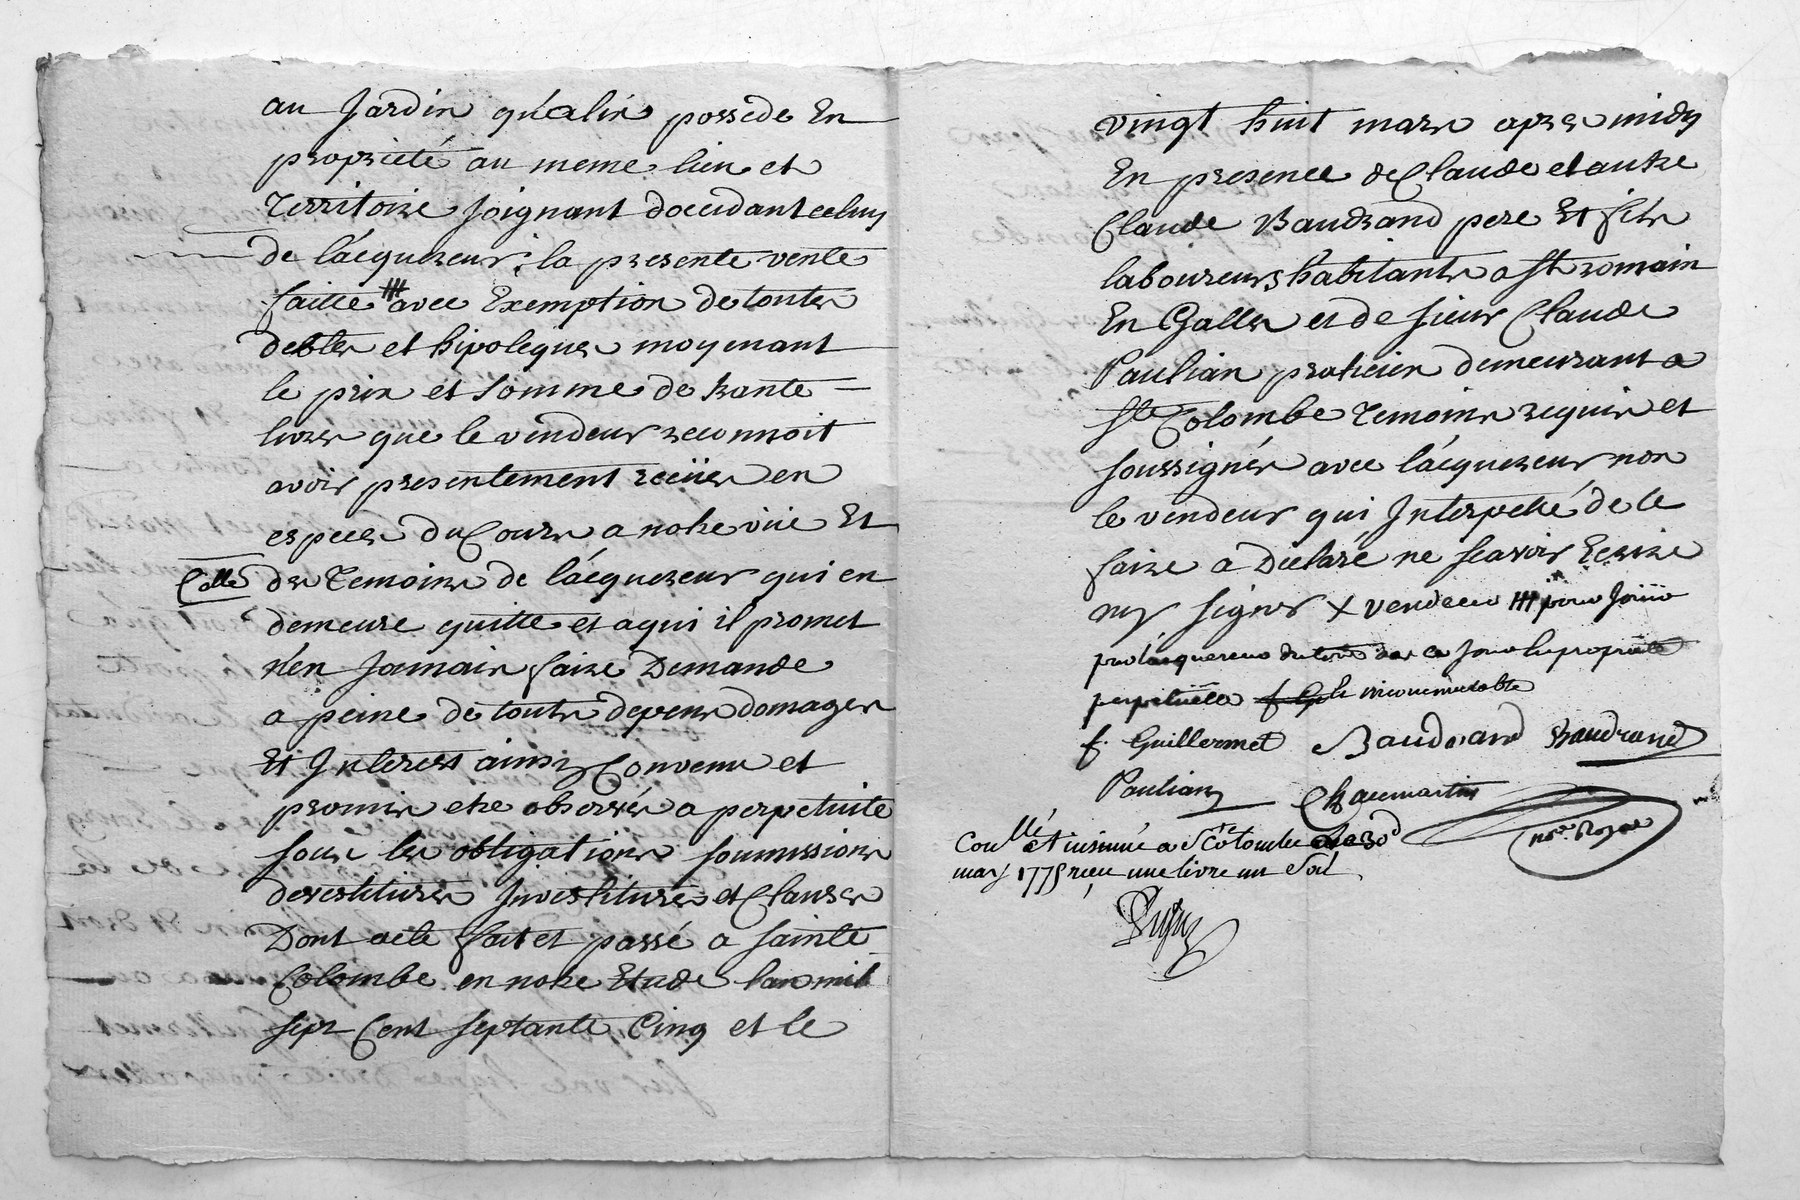 au Jardin qu'alui possede En
proprieté au meme lieu et
Territoire joignant doccidant celuy
de l'acquereur, la presente vente
faitte ᚔ avec Exemption de toutes
debtes et hipoteques moyenant
le prix et somme de trante
livres que le vendeur reconnoit
avoir presentement reçües en
especes du Cours a notre vüe Et
Collé
des Temoins de l'acquereur qui en
demeure quitte et a qui il promet
n'en Jamais faire Demande
a peine de touts depens domages
Et Interest ainsy Convenu et
promis etre observés a perpetuité
sous les obligations soumissions
devestitures Jnvestitures et Clauses
Dont acte fait et passé a sainte
Colombe en notre Etude l'an mil
sept Cent septante Cinq et le
vingt huit mars apres midy
En presence de Claude et autre
Claude Baudrand pere Et fils
laboureurs habitants a St romain
En Galles et de sieur Claude
Paulian praticien demeurant a
Ste Colombe Temoins requis et
soussignés avec l'acquereur non
le vendeur qui Interpellé de le
faire a Declaré ne scavoir Ecrire
ny signer x vendeur ᚔ pour joüir
par lacquereur du tout des ce jour en proprieté
perpetuelle incommutable
f. Guillermet Baudrand Baudrand
Paulian Chaumartin
nore Royal
Conllé et insinué a Ste Colombe le 30
mars 1775 reçu une livre un sol